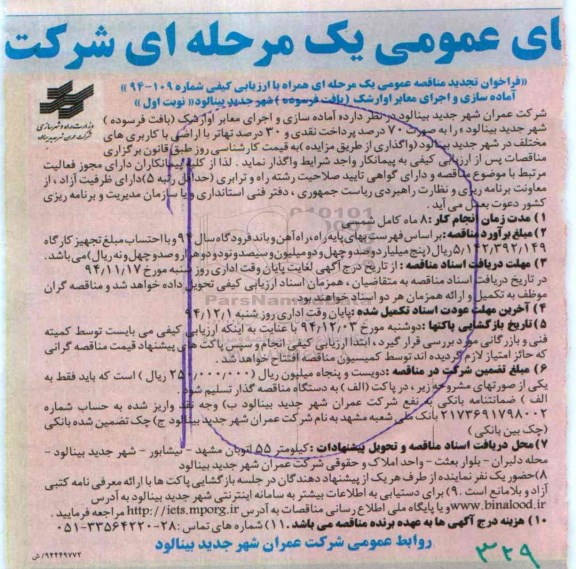 ای عمومی یک مرحله ای شرکت
«فراخوان تجدید مناقصه عمومی یک مرحله ای همراه با ارزیابی کیفی شماره ۱۰۹-۹۴»
آماده سازی و اجرای معابر اوارشک (بافت فرسوده) شهر جدید بینالود« نوبت اول »
وزارت راه و شهرسازی
شرکت عمران شهر جدید بینالود
شرکت عمران شهر جدید بینالود در نظر دارد« آماده سازی و اجرای معابر اوارشک (بافت فرسوده)
شهر جدید بینالود » را به صورت ۷۰ درصد پرداخت نقدی و ۳۰ درصد تهاتر با اراضی با کاربری های
مختلف در شهر جدید بینالود (واگذاری از طریق مزایده) به قیمت کارشناسی روز طبق قانون برگزاری
مناقصات پس از ارزیابی کیفی به پیمانکار واجد شرایط واگذار نماید . لذا از کلیه پیمانکاران دارای مجوز فعالیت
مرتبط با موضوع مناقصه و دارای گواهی تایید صلاحیت رشته راه و ترابری (حداقل رتبه ۵)دارای ظرفیت آزاد ، از
معاونت برنامه ریزی و نظارت راهبردی ریاست جمهوری ، دفتر فنی استانداری ویا سازمان مدیریت و برنامه ریزی
کشور دعوت بعمل می آید .
۱) مدت زمان انجام کار :۸ ماه کامل شمسی
۲)مبلغ برآورد مناقصه:براساس فهرست بهای پایه راه ، راه آهن و باند فرودگاه سال ۹۴ و با احتساب مبلغ تجهیز کارگاه
۵،۱۴۲،۳۹۲،۱۴۹ ریال (پنج میلیارد و صد و چهل و دو میلیون و سیصد و نود و دو هزار و صد و چهل و نه ریال) می باشد.
۳) مهلت دریافت اسناد مناقصه : از تاریخ درج آگهی لغایت پایان وقت اداری روز شنبه مورخ ۹۴/۱۱/۱۷
در تاریخ دریافت اسناد مناقصه به متقاضیان ، همزمان اسناد ارزیابی کیفی تحویل داده خواهد شد و مناقصه گران
موظف به تکمیل و ارائه همزمان هر دو اسناد خواهند بود.
۴) آخرین مهلت عودت اسناد تکمیل شده :پایان وقت اداری روز شنبه ۹۴/۱۲/۱
۵)تاریخ بازگشایی پاکتها :دوشنبه مورخ ۹۴/۱۲/۰۳ با عنایت به اینکه ارزیابی کیفی می بایست توسط کمیته
فنی و بازرگانی مورد بررسی قرار گیرد ، ابتدا ارزیابی کیفی انجام و سپس پاکت های پیشنهاد قیمت مناقصه گرانی
که حائز امتیاز لازم گردیده اند توسط کمیسیون مناقصه افتتاح خواهد شد .
۶) مبلغ تضمین شرکت در مناقصه :دویست و پنجاه میلیون ریال (۲۵۰/۰۰۰/۰۰۰ ریال ) است که باید فقط به
یکی از صورتهای مشروحه زیر ، در پاکت (الف ) به دستگاه مناقصه گذار تسلیم شود .
الف ) ضمانتنامه بانکی به نفع شرکت عمران شهر جدید بینالود ب) وجه نقد واریز شده به حساب شماره
۲۱۷۳۶۹۱۷۹۸۰۰۲ بانک ملی شعبه مشهد به نام شرکت عمران شهر جدید بینالود ج) چک تضمین شده بانکی
(چک بین بانکی )
۷)محل دریافت اسناد مناقصه و تحویل پیشنهادات :کیلومتر ۵۵ اتوبان مشهد - نیشابور - شهر جدید بینالود -
محله دلبران - بلوار بعثت - واحد املاک و حقوقی شرکت عمران شهر جدید بینالود
۸)حضور یک نفر نماینده از طرف هر یک از پیشنهاد دهندگان در جلسه بازگشایی پاکت ها با ارائه معرفی نامه کتبی
آزاد و بلامانع است .۹) برای دستیابی به اطلاعات بیشتر به سامانه اینترنتی شهر جدید بینالود به آدرس
www.binalood.ir ویا پایگاه ملی اطلاع رسانی مناقصات به آدرس http://iets.mporg.ir مراجعه فرمایید .
۱۰) هزینه درج آگهی ها به عهده برنده مناقصه می باشد .۱۱) شماره های تماس :۲۸-۳۳۵۶۴۲۲۰-۰۵۱
روابط عمومی شرکت عمران شهر جدید بینالود
۹۴۴۴۹۷۷۲/ش
۳۲۹